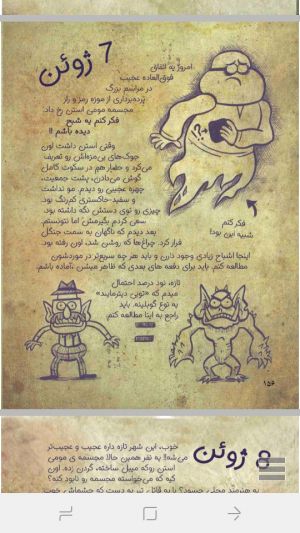 7 ژوئن
امروز یه اتفاق
فوق‌العاده عجیب
در مراسم بزرگ
پرده‌برداری از موزه رمز و راز
مجسمه مومی استن رخ داد.
فکر کنم یه شبح
دیده باشم !!
وقتی استن داشت اون
جوک‌های بی‌مزه‌اش رو تعریف
می‌کرد و حضار هم در سکوت کامل
گوش می‌دادن، پشت جمعیت،
چهره عجیبی رو دیدم. مو نداشت
و سفید-خاکستری کم‌رنگ بود.
چیزی رو توی دستش نگه داشته بود.
سعی کردم بگیرمش اما نتونستم.
بعد دیدم که ناگهان به سمت جنگل
فرار کرد. چراغ‌ها که روشن شد، اون رفته بود.
فکر کنم
شبیه این بود!
اینجا اشباح زیادی وجود دارن و باید هر چه سریع‌تر در موردشون
مطالعه کنم. باید برای دفعه های بعدی که ظاهر میشن ،آماده باشم.
تازه، نود درصد احتمال
میدم که «توبی دیترمایند»
یه نوع گوبلینه. باید
راجع به اینا مطالعه کنم.
۱۵۶
8 ژوئن
خوب، این شهر تازه داره عجیب و عجیب‌تر
می‌شه!! یه نفر همین حالا مجسمه ی مومی
استن روکه مبیل ساخته، گردن زده. اون
کیه که می‌خواسته مجسمه رو نابود کنه؟